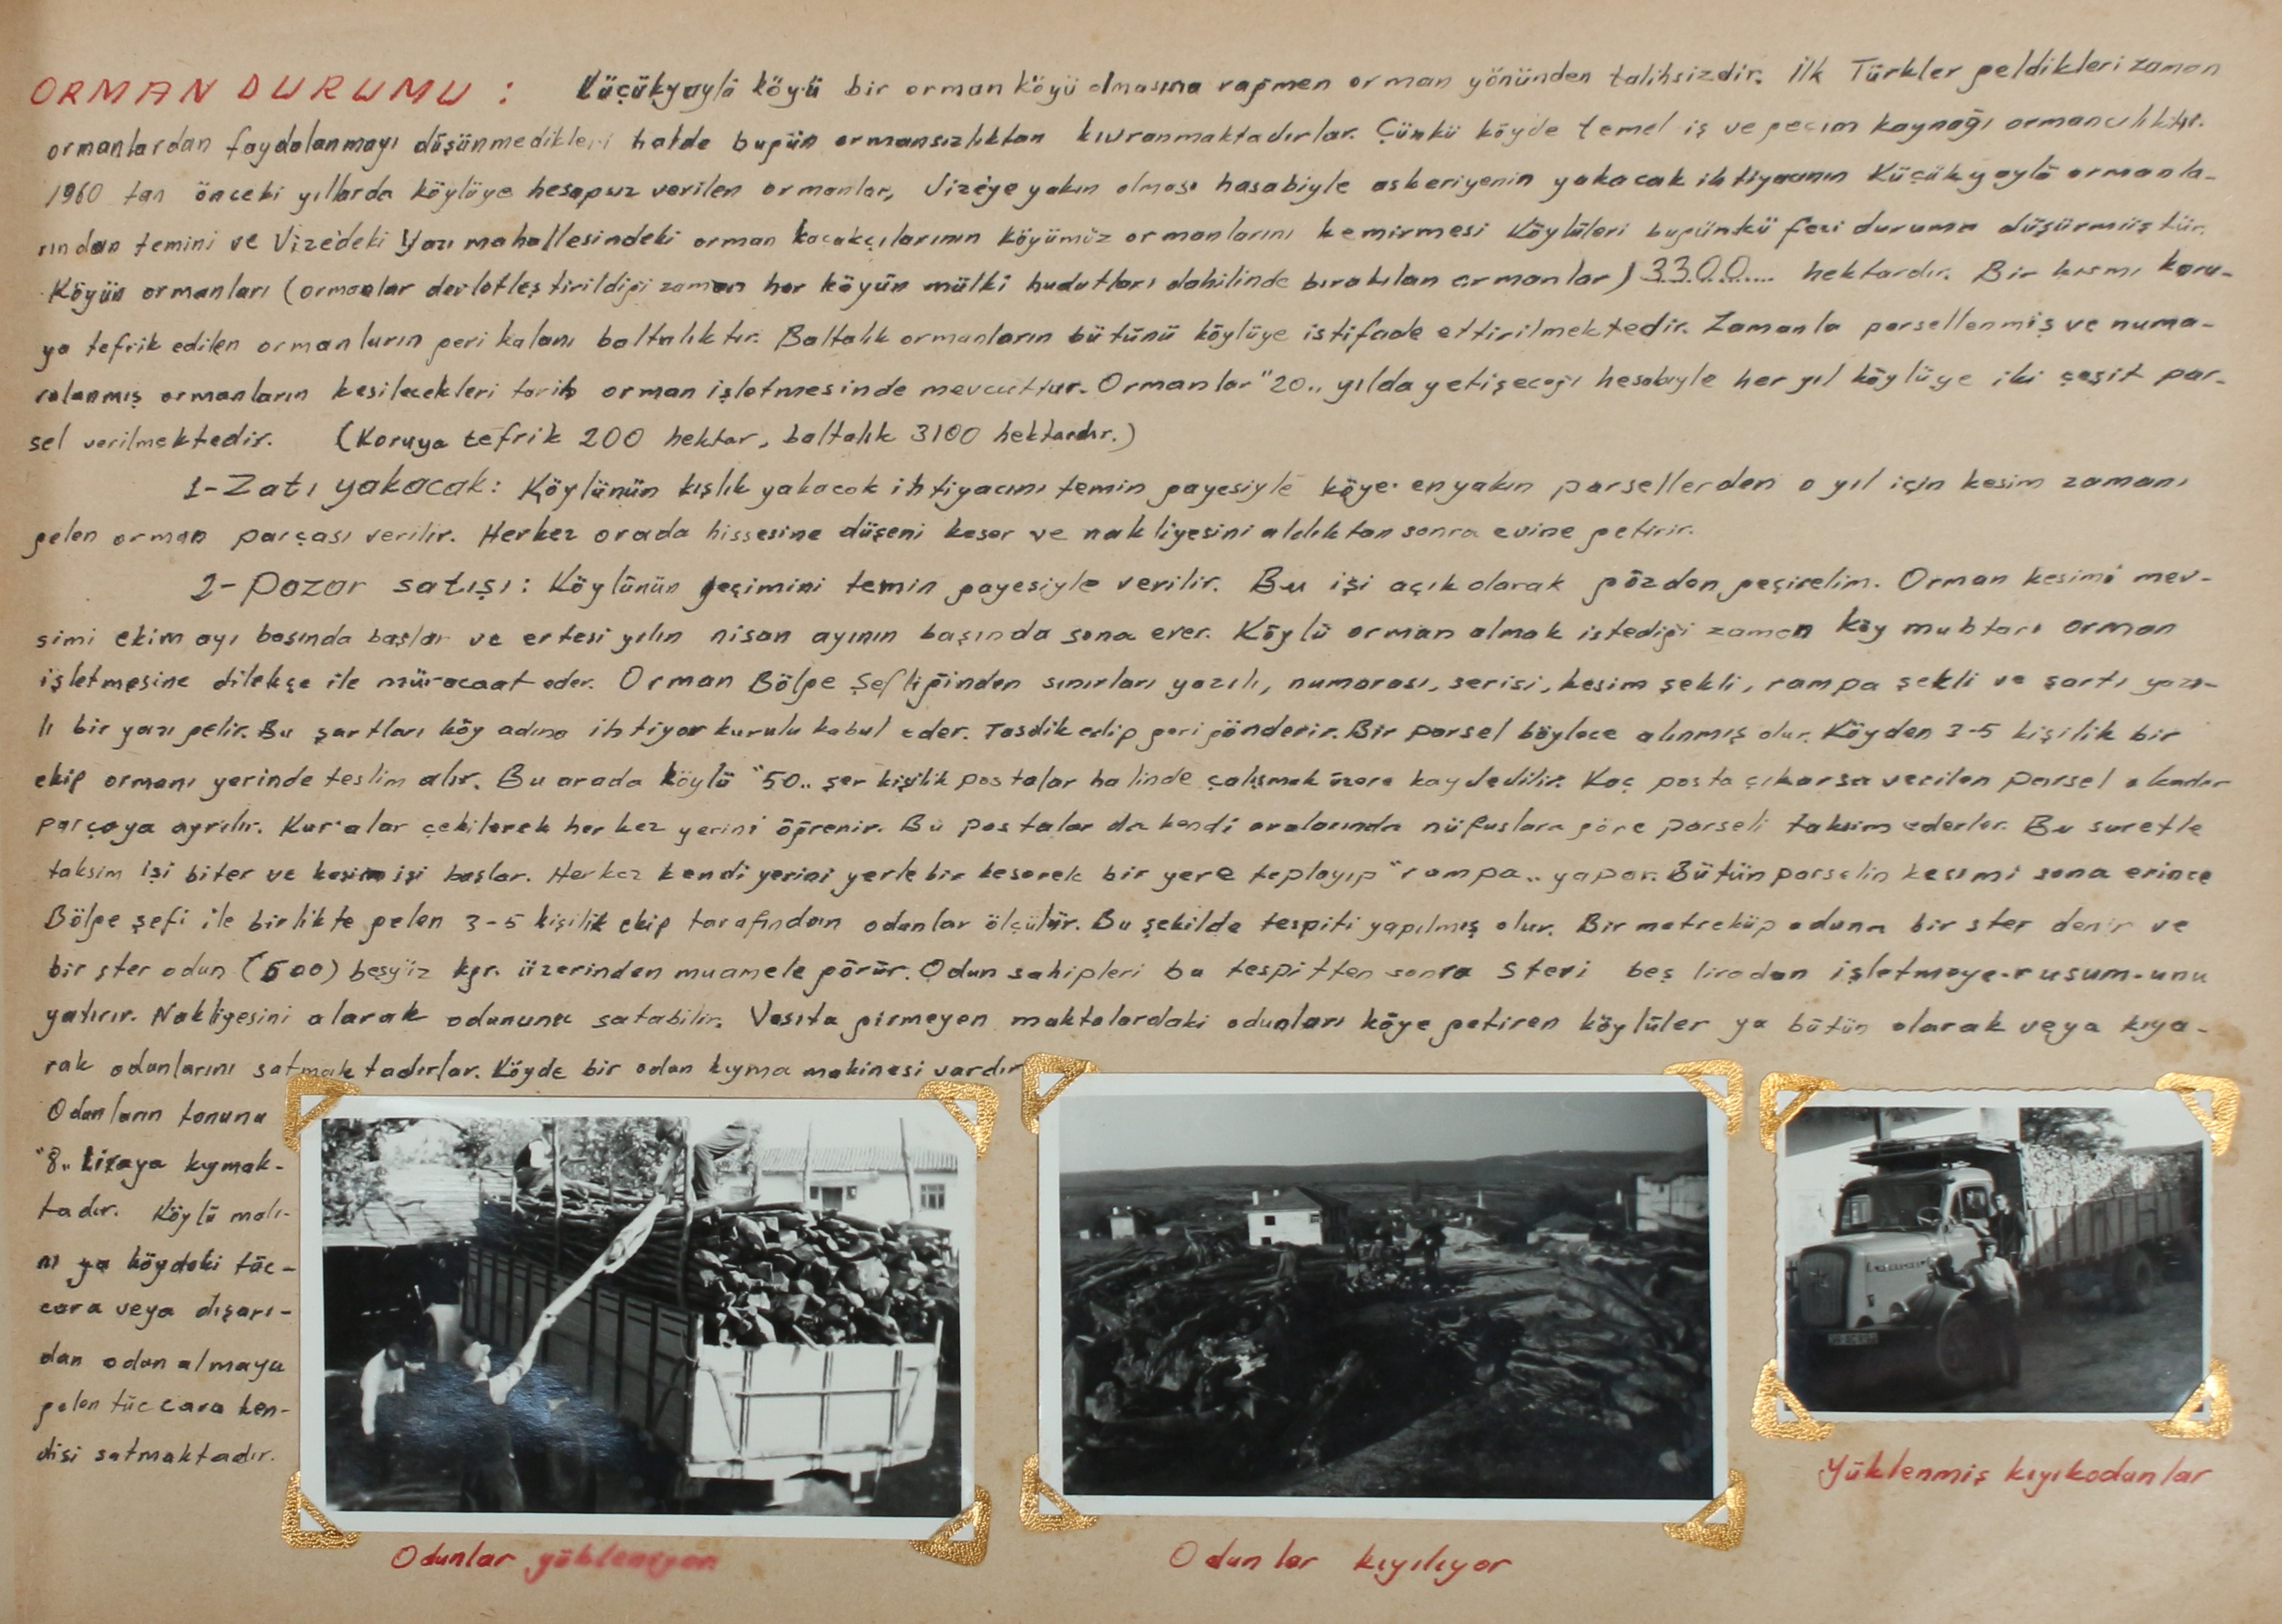 ORMAN DURUMU : Küçükyaylâ köyü bir orman köyü olmasına rağmen orman yönünden talihsizdir. İlk Türkler geldikleri zaman
ormanlardan faydalanmayı düşünmedikleri halde bugün ormansızlıktan kıvranmaktadırlar. Çünkü köyde temel iş ve geçim kaynağı ormancılıktır.
1960 tan önceki yıllarda köylüye hesapsız verilen ormanlar, Vize'ye yakın olması hasabiyle askeriyenin yakacak ihtiyacının Küçükyaylâ ormanla-
rından temini ve Vize'deki Yazı mahallesindeki orman kaçakçılarının köyümüz ormanlarını kemirmesi Köylüleri bugünkü feci duruma düşürmüştür.
Köyün ormanları (ormanlar devletleştirildiği zaman her köyün mülki hudutları dahilinde bırakılan ormanlar) 3300.... hektardır. Bir kısmı koru-
ya tefrik edilen ormanların geri kalanı baltalıktır. Baltalık ormanların bütünü köylüye istifade ettirilmektedir. Zamanla parsellenmiş ve numa-
ralanmış ormanların kesilecekleri tarih orman işletmesinde mevcuttur. Ormanlar "20" yılda yetişeceği hesabıyle her yıl köylüye iki çeşit par-
sel verilmektedir. (Koruya tefrik 200 hektar, baltalık 3100 hektardır.)
1-Zatı yakacak: Köylünün kışlık yakacak ihtiyacını temin gayesiyle köye en yakın parsellerden o yıl için kesim zamanı
gelen orman parçası verilir. Herkez orada hissesine düşeni keser ve nakliyesini aldıktan sonra evine getirir.
2-Pazar satışı: Köylünün geçimini temin gayesiyle verilir. Bu işi açık olarak gözden geçirelim. Orman kesimi mev-
simi ekim ayı başında başlar ve ertesi yılın nisan ayının başında sona erer. Köylü orman almak istediği zaman köy muhtarı orman
işletmesine dilekçe ile müracaat eder. Orman Bölge Şefliğinden sınırları yazılı, numarası, serisi, kesim şekli, rampa şekli ve şartı yazı-
lı bir yazı gelir. Bu şartları köy adına ihtiyar kurulu kabul eder. Tasdik edip geri gönderir. Bir parsel böylece alınmış olur. Köyden 3-5 kişilik bir
ekip ormanı yerinde teslim alır. Bu arada köylü "50" şer kişilik postalar halinde çalışmak üzere kaydedilir. Kaç posta çıkarsa verilen parsel o kadar
parçaya ayrılır. Kur'alar çekilerek herkez yerini öğrenir. Bu postalar da kendi aralarında nüfuslara göre parseli taksim ederler. Bu suretle
taksim işi biter ve kesim işi başlar. Herkez kendi yerini yerle bir keserek bir yere toplayıp "rampa" yapar. Bütün parselin kesimi sona erince
Bölge şefi ile birlikte gelen 3-5 kişilik ekip tarafından odunlar ölçülür. Bu şekilde tespiti yapılmış olur. Bir metreküp oduna bir ster denir ve
bir ster odun (500) beşyüz kgr. üzerinden muamele görür. Odun sahipleri bu tespitten sonra steri beş liradan işletmeye-rusum-unu
yatırır. Nakliyesini alarak odununu satabilir. Vasıta girmeyen maktalardaki odunları köye getiren köylüler ya bütün olarak veya kıya-
rak odunlarını satmaktadırlar. Köyde bir odun kıyma makinesi vardır
Odunların tonunu
"8" liraya kıymak-
tadır. Köylü malı-
nı ya köydeki tüc-
cara veya dışarı-
dan odun almaya
gelen tüccara ken-
disi satmaktadır.
Odunlar yükleniyor
Odunlar kıyılıyor
Yüklenmiş kıyık odunlar